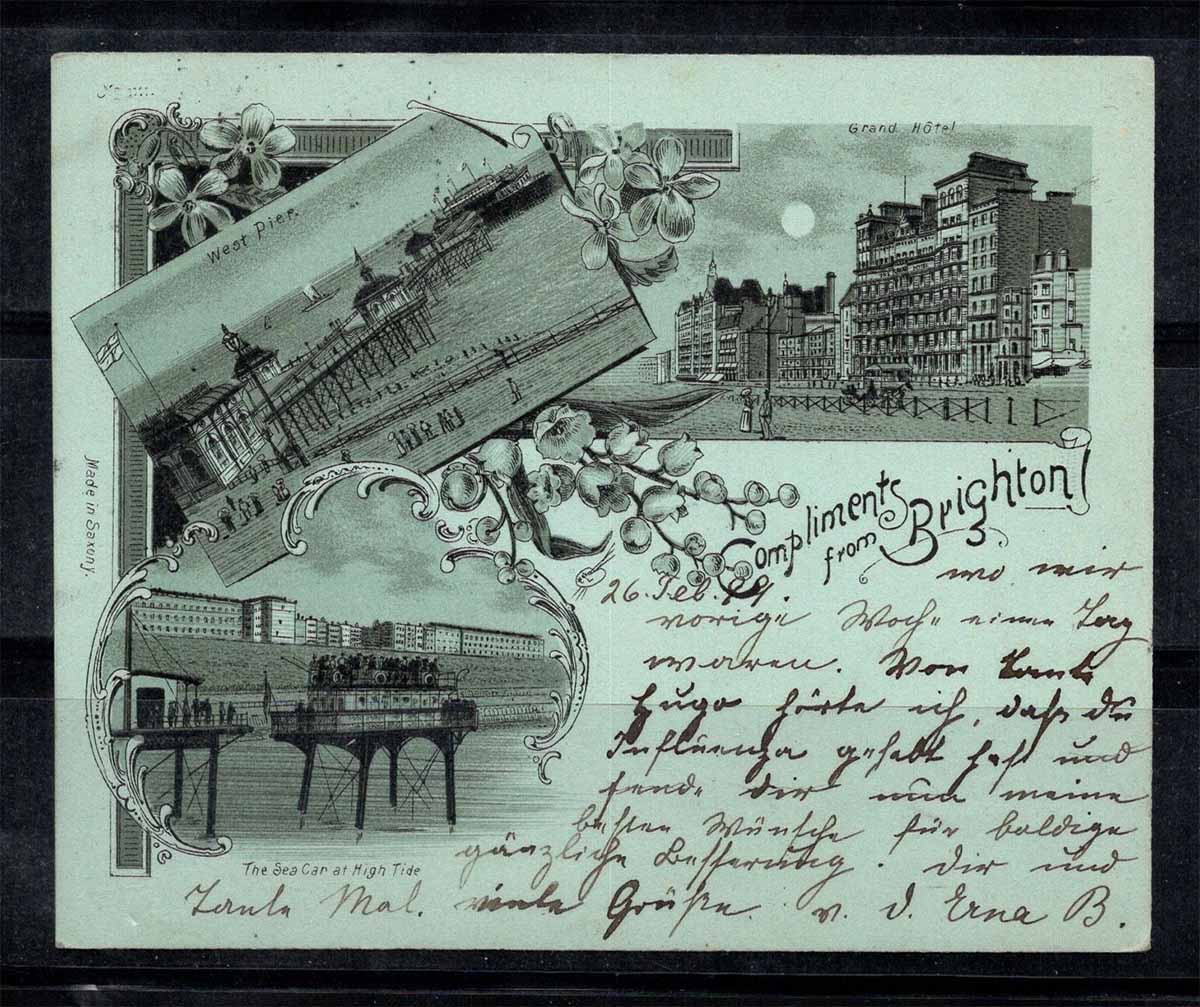 West Pier.
Grand Hôtel
Made in Saxony.
The Sea Car at High Tide
Compliments
from Brighton!
wo wir
26. Feb. 99.
vorige Woche einen Tag
waren. Von Tante
Hugo hörte ich, daß du
Influenza gehabt hast und
sende dir nun meine
besten Wünsche für baldige
gänzliche Besserung. Dir und
Tante Mal. viele Grüße. v. d. Erna B.